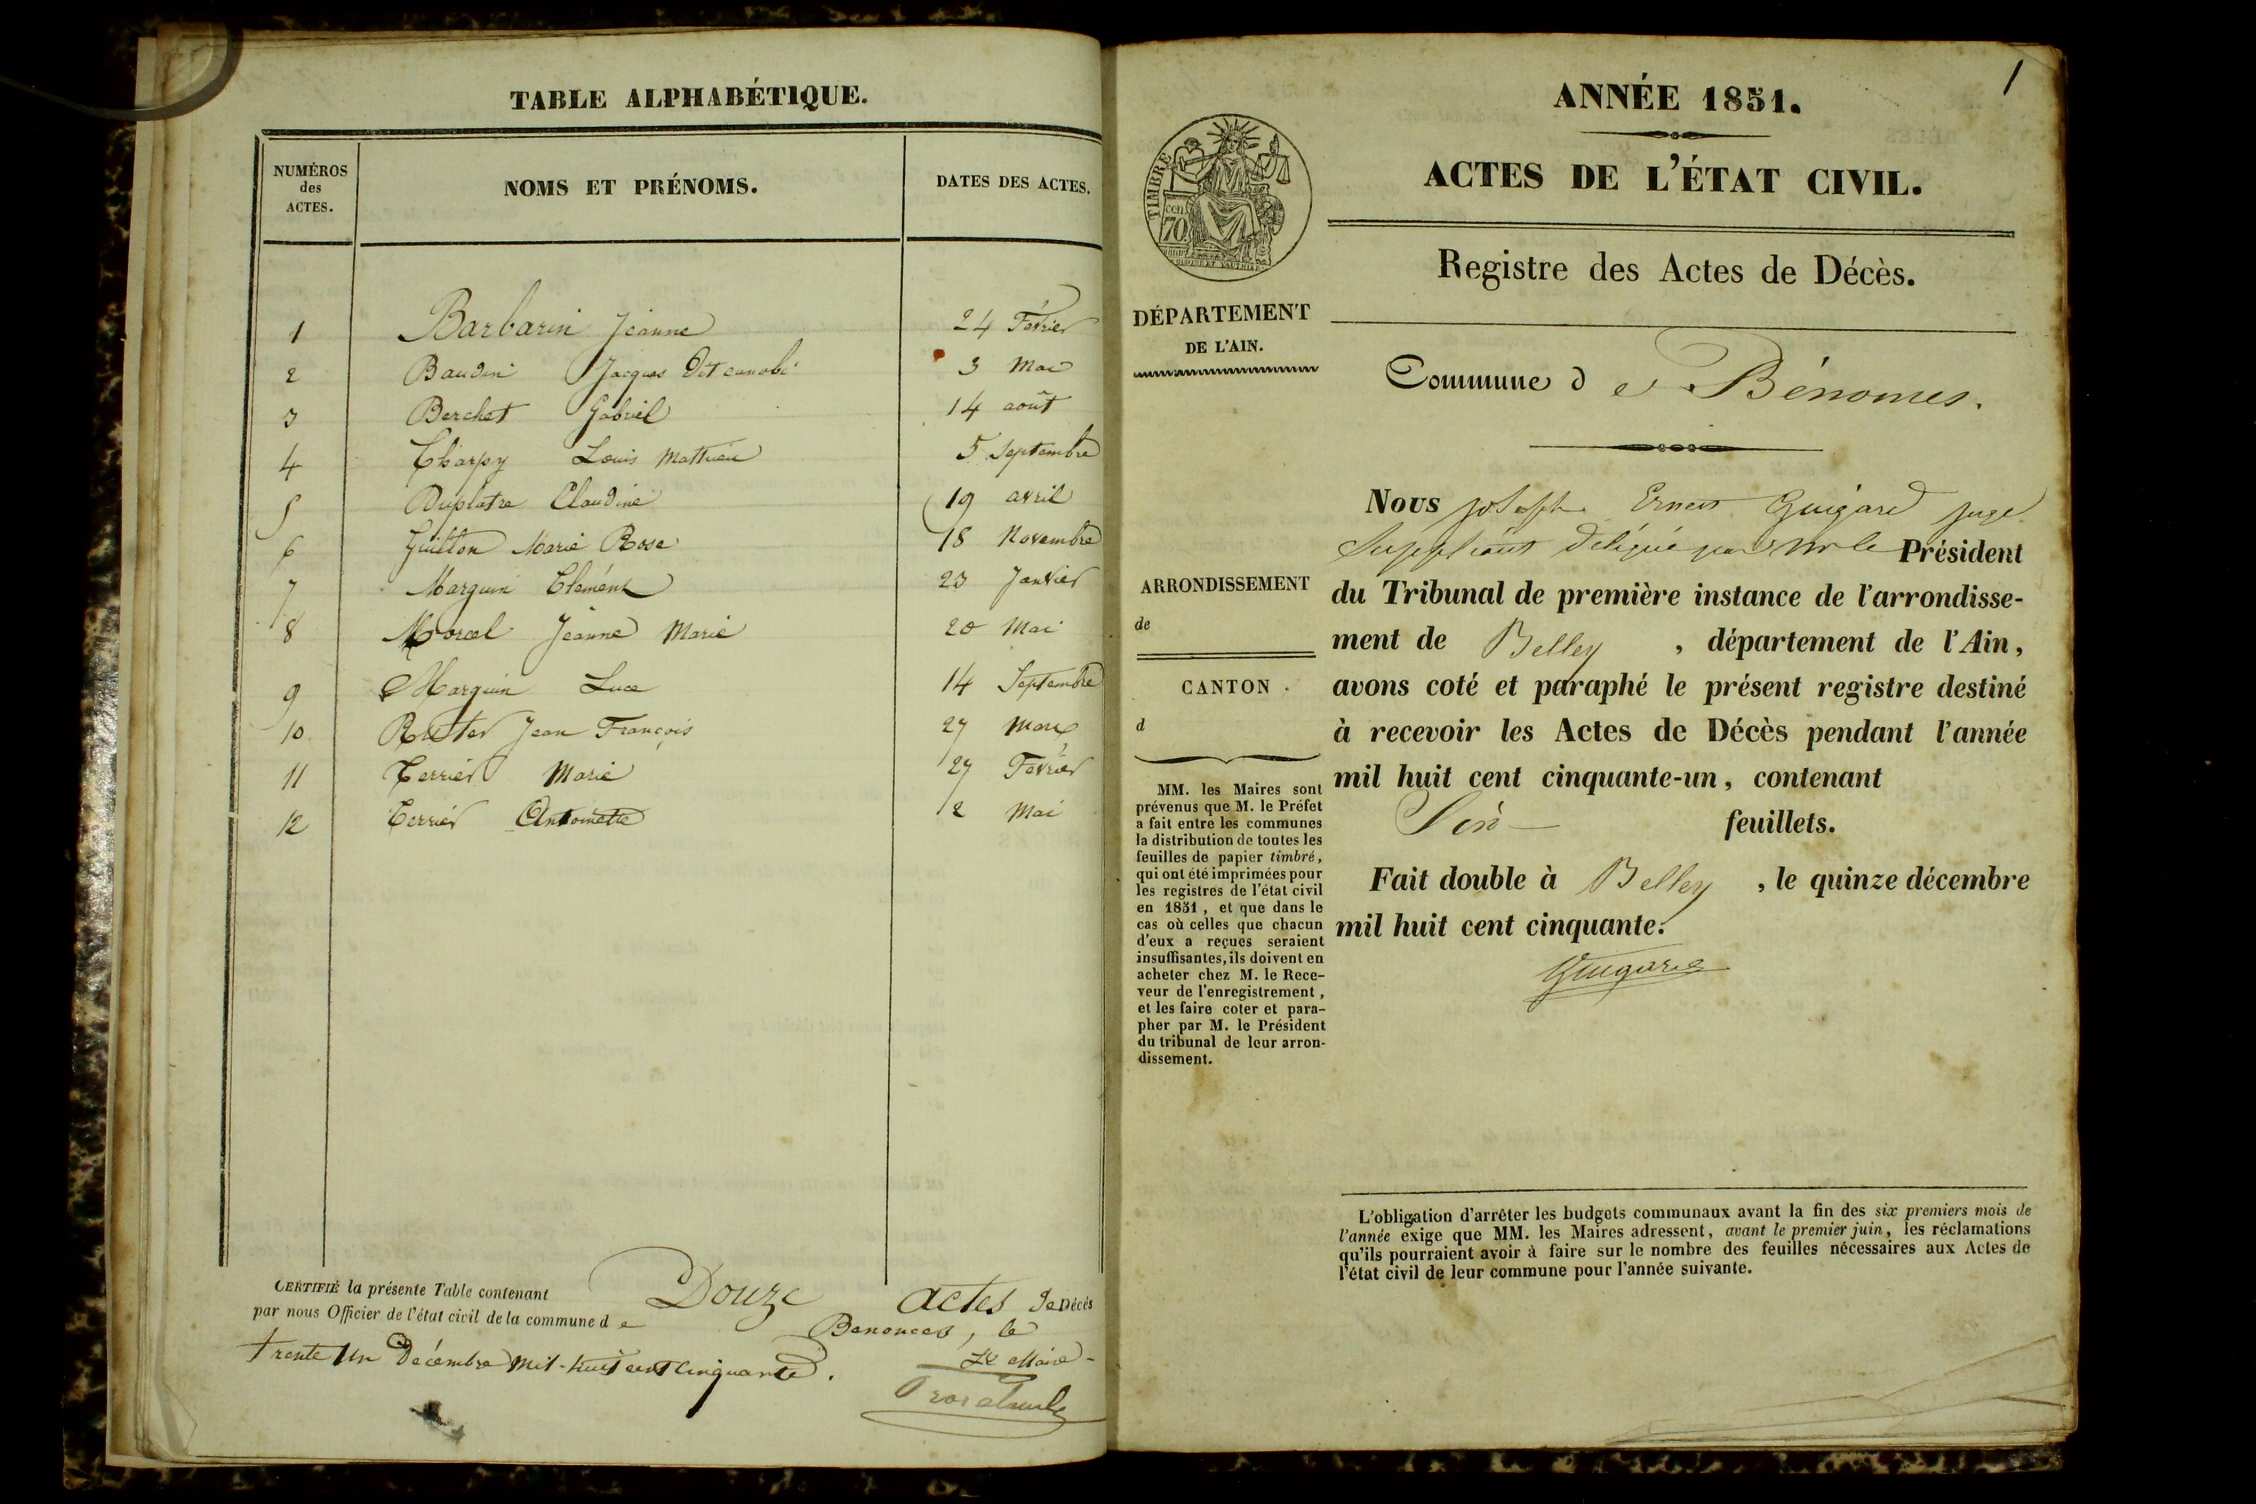 TABLE ALPHABÉTIQUE.
NUMÉROS
des
ACTES.
NOMS ET PRÉNOMS.
DATES DES ACTES.
1 Barbarin Jeanne 24 Février
2 Baudin Jacques dit 3 Mai
3 Berchet Gabriel 14 août
4 Charpy Louis Mathieu 5 Septembre
5 Duplatre Claudine 19 avril
6 Guitton Marie Rose 18 Novembre
7 Marguin Clément 23 Janvier
8 Morcel Jeanne Marie 20 Mai
9 Marguin Luce 14 Septembre
10 Jean François 27 Mars
11 Terrier Marie 27 Février
12 Terrier Antoinette 2 Mai
CERTIFIÉ la présente Table contenant Douze actes de Décès
par nous Officier de l'état civil de la commune d e Benonces, le
trente un Décembre mil-huit cent cinquante.
Le Maire
1
ANNÉE 1851.
ACTES DE L'ÉTAT CIVIL.
Registre des Actes de Décès.
TIMBRE
cen.
70
DÉPARTEMENT
DE L'AIN.
Commune d e Bénonces.
Nous joseph Ernest Guigard juge
Suppléant délégué par Mr le Président
du Tribunal de première instance de l'arrondisse-
ment de Belley , département de l'Ain,
avons coté et paraphé le présent registre destiné
à recevoir les Actes de Décès pendant l'année
mil huit cent cinquante-un, contenant
feuillets.
Fait double à Belley , le quinze décembre
mil huit cent cinquante.
Guigard
ARRONDISSEMENT
de
CANTON
d
MM. les Maires sont
prévenus que M. le Préfet
a fait entre les communes
la distribution de toutes les
feuilles de papier timbré,
qui ont été imprimées pour
les registres de l'état civil
en 1851, et que dans le
cas où celles que chacun
d'eux a reçues seraient
insuffisantes, ils doivent en
acheter chez M. le Rece-
veur de l'enregistrement,
et les faire coter et para-
pher par M. le Président
du tribunal de leur arron-
dissement.
L'obligation d'arrêter les budgets communaux avant la fin des six premiers mois de
l'année exige que MM. les Maires adressent, avant le premier juin, les réclamations
qu'ils pourraient avoir à faire sur le nombre des feuilles nécessaires aux Actes de
l'état civil de leur commune pour l'année suivante.